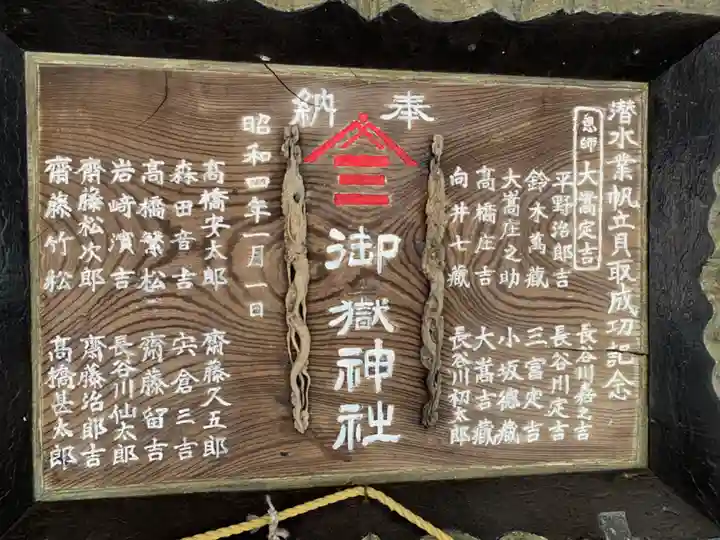 奉納
潜水業帆立貝取成功記念
恩師 大嵩定吉
平野治郎吉
鈴木萬蔵
大嵩庄之助
髙橋庄吉
向井七蔵
長谷川嘉之吉
長谷川定吉
三宮定吉
小坂徳蔵
大嵩吉蔵
長谷川初太郎
三
御嶽神社
昭和四年一月一日
髙橋安太郎
森田音吉
髙橋繁松
岩﨑濱吉
齊藤松次郎
齋藤竹松
齋藤久五郎
宍倉三吉
齋藤留吉
長谷川仙太郎
齋藤治郎吉
髙橋甚太郎